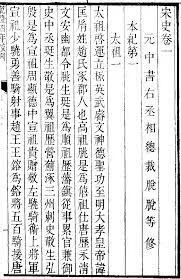 宋史卷一
元中書右丞相總裁脫脫等修
本紀第一
太祖一
太祖啓運立極英武睿文神德聖功至明大孝皇帝諱
匡胤姓趙氏涿郡人也高祖朓是爲僖祖仕唐歷永清
文安幽都令朓生珽是爲順祖歷藩鎭從事累官兼御
史中丞珽生敬是爲翼祖歷營薊涿三州刺史敬生弘
殷是爲宣祖周顯德中宣祖貴贈敬左驍騎衞上將軍
宣祖少驍勇善騎射事趙王王鎔爲鎔將五百騎援唐